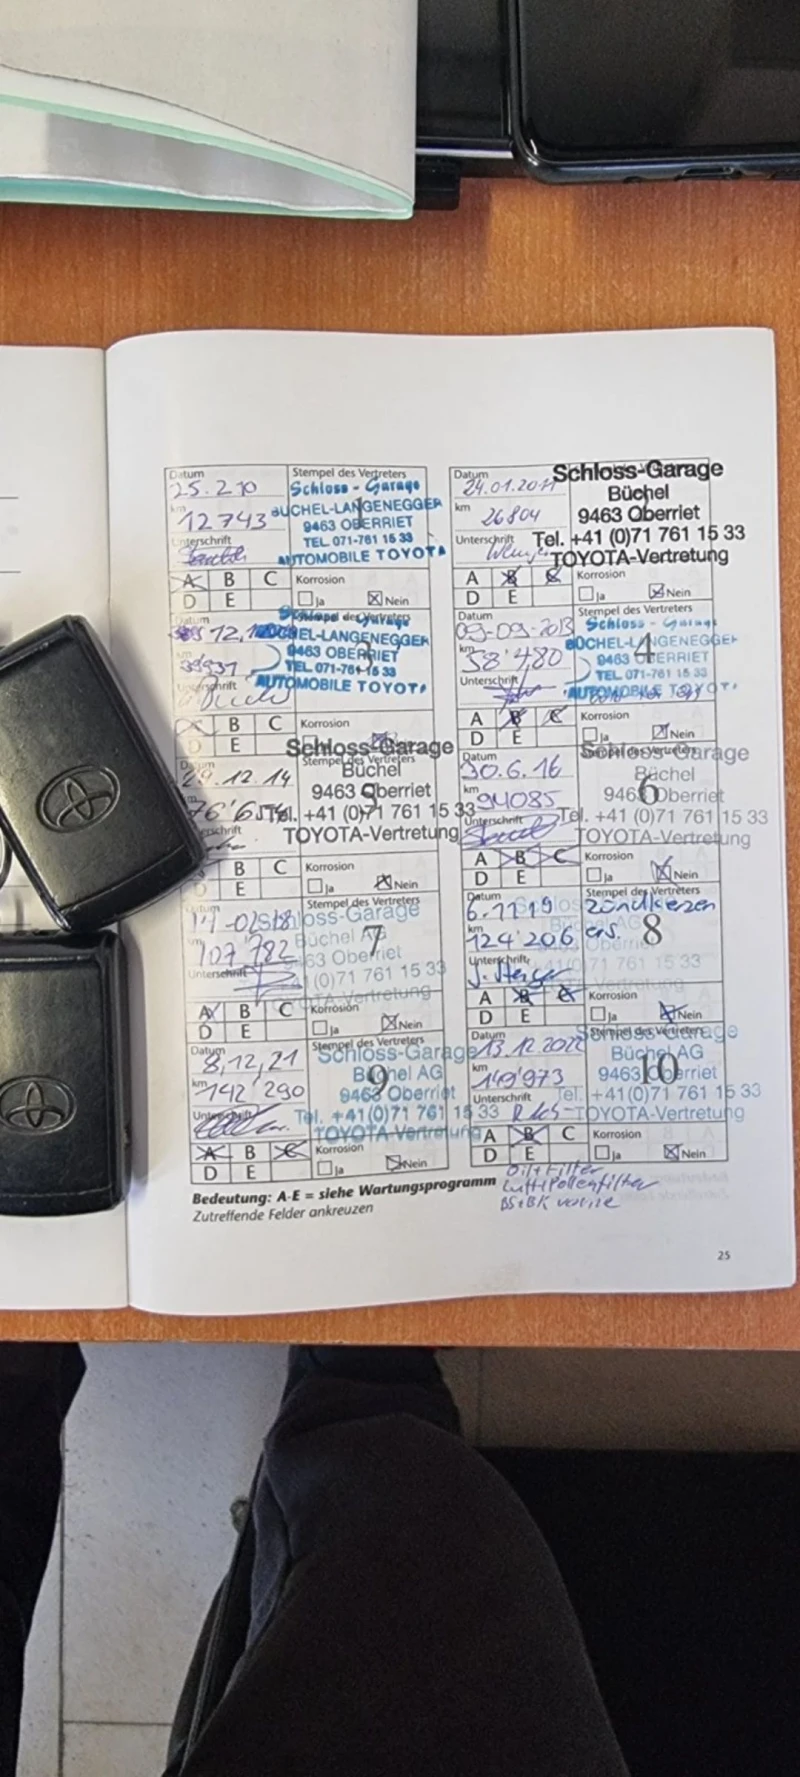 Datum
25.2.10
km
12743
Unterschrift
Stempel des Vertreters
1
Schloss-Garage
BÜCHEL-LANGENEGGER
9463 OBERRIET
TEL. 071-761 15 33
AUTOMOBILE TOYOTA
A B C
D E
Korrosion
Ja Nein
Datum
24.01.2011
km
26804
Unterschrift
Schloss-Garage
Büchel
9463 Oberriet
Tel. +41 (0)71 761 15 33
TOYOTA-Vertretung
A B C
D E
Korrosion
Ja Nein
Datum
km
Unterschrift
Stempel des Vertreters
3
BÜCHEL-LANGENEGGER
9463 OBERRIET
TEL. 071-761 15 33
AUTOMOBILE TOYOTA
B C
D E
Korrosion
Datum
09-09-2013
km
58'480
Unterschrift
Stempel des Vertreters
4
Schloss-Garage
BÜCHEL-LANGENEGGER
9463 OBERRIET
TEL. 071-761 15 33
AUTOMOBILE TOYOTA
A B C
D E
Korrosion
Ja Nein
Datum
29.12.14
Stempel des Vertreters
5
Schloss-Garage
Büchel
9463 Oberriet
Tel. +41 (0)71 761 15 33
TOYOTA-Vertretung
B C
D E
Korrosion
Ja Nein
Datum
30.6.16
km
94085
Unterschrift
Stempel des Vertreters
6
Schloss-Garage
Büchel
9463 Oberriet
Tel. +41 (0)71 761 15 33
TOYOTA-Vertretung
A B C
D E
Korrosion
Ja Nein
Datum
km
107'782
Unterschrift
Stempel des Vertreters
7
Schloss-Garage
Büchel AG
9463 Oberriet
(0)71 761 15 33
TOYOTA-Vertretung
A B C
D E
Korrosion
Ja Nein
Datum
6.11.19
km
124'206
Unterschrift
Stempel des Vertreters
Zündkerzen
ers.
8
A B C
D E
Korrosion
Ja Nein
Datum
8,12,21
km
142'290
Unterschrift
Stempel des Vertreters
9
Schloss-Garage
Büchel AG
9463 Oberriet
Tel. +41(0)71 761 15 33
TOYOTA-Vertretung
A B C
D E
Korrosion
Ja Nein
Datum
13.12.2022
km
149'973
Unterschrift
Stempel des Vertreters
10
Schloss-Garage
Büchel AG
9463 Oberriet
Tel. +41(0)71 761 15 33
TOYOTA-Vertretung
A B C
D E
Korrosion
Ja Nein
Bedeutung: A-E = siehe Wartungsprogramm
Zutreffende Felder ankreuzen
Oil+Filter
Luft+Pollenfilter
25